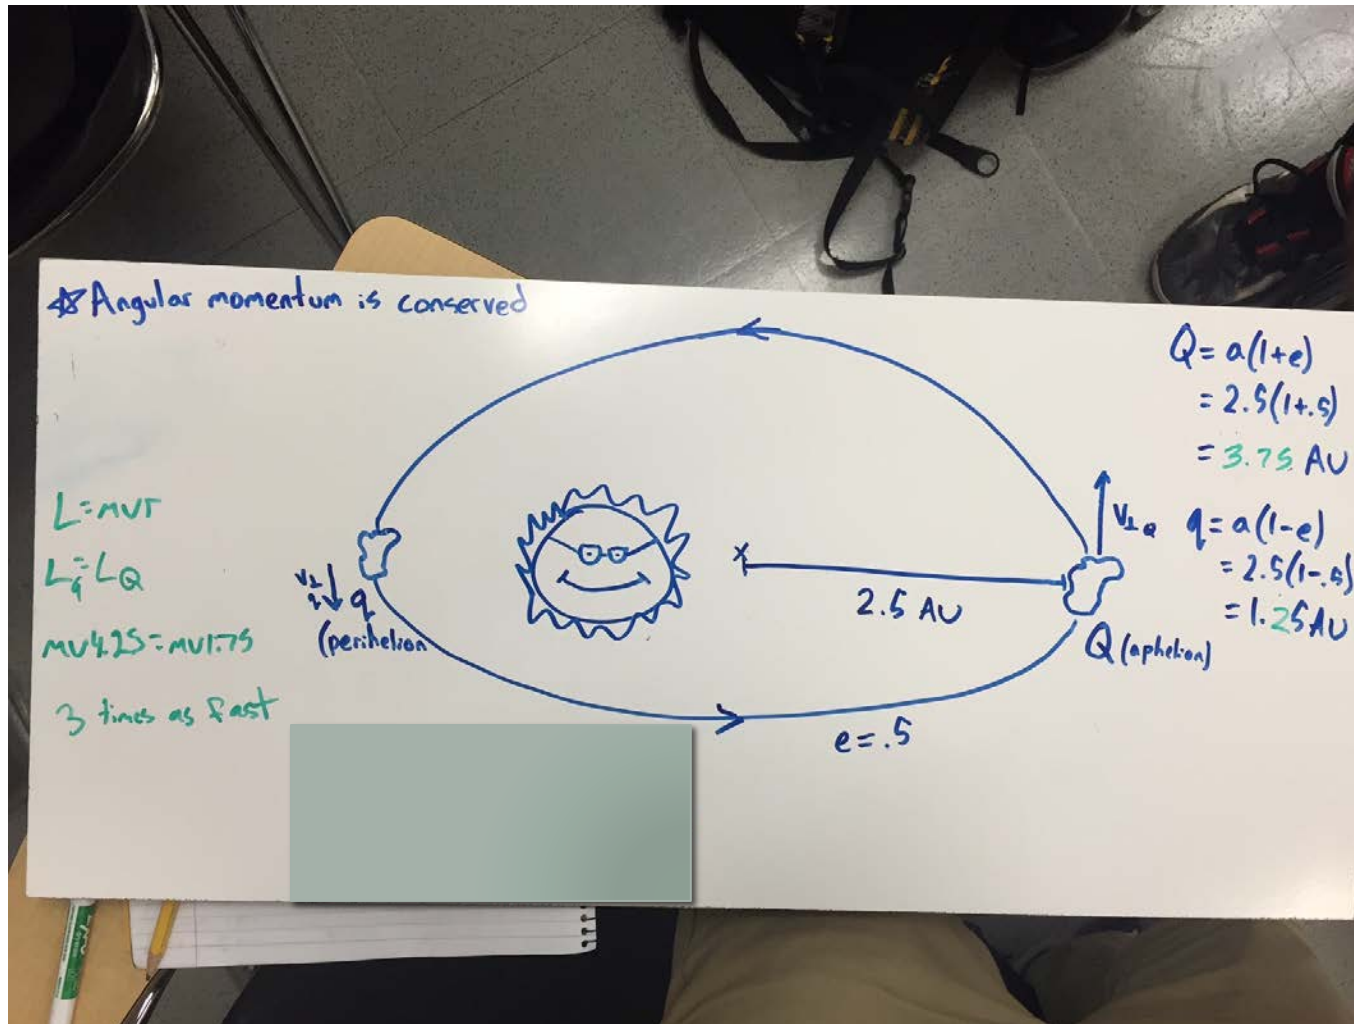 ☆ Angular momentum is conserved
L=mvr
Lq=LQ
mv4.25=mv1.75
3 times as fast
V⊥q
q
(perihelion
2.5 AU
e=.5
V⊥Q
Q (aphelion)
Q=a(1+e)
=2.5(1+.5)
=3.75 AU
q=a(1-e)
=2.5(1-.5)
=1.25AU